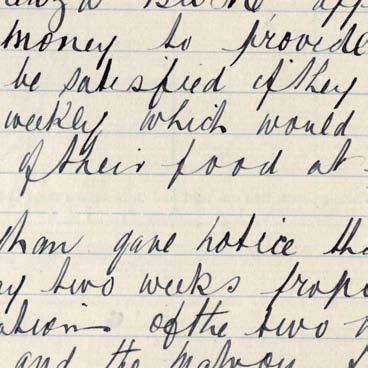 money to provide
be satisfied if they
weekly which would
of their food at
gave notice
two weeks
of the two
and the Matron